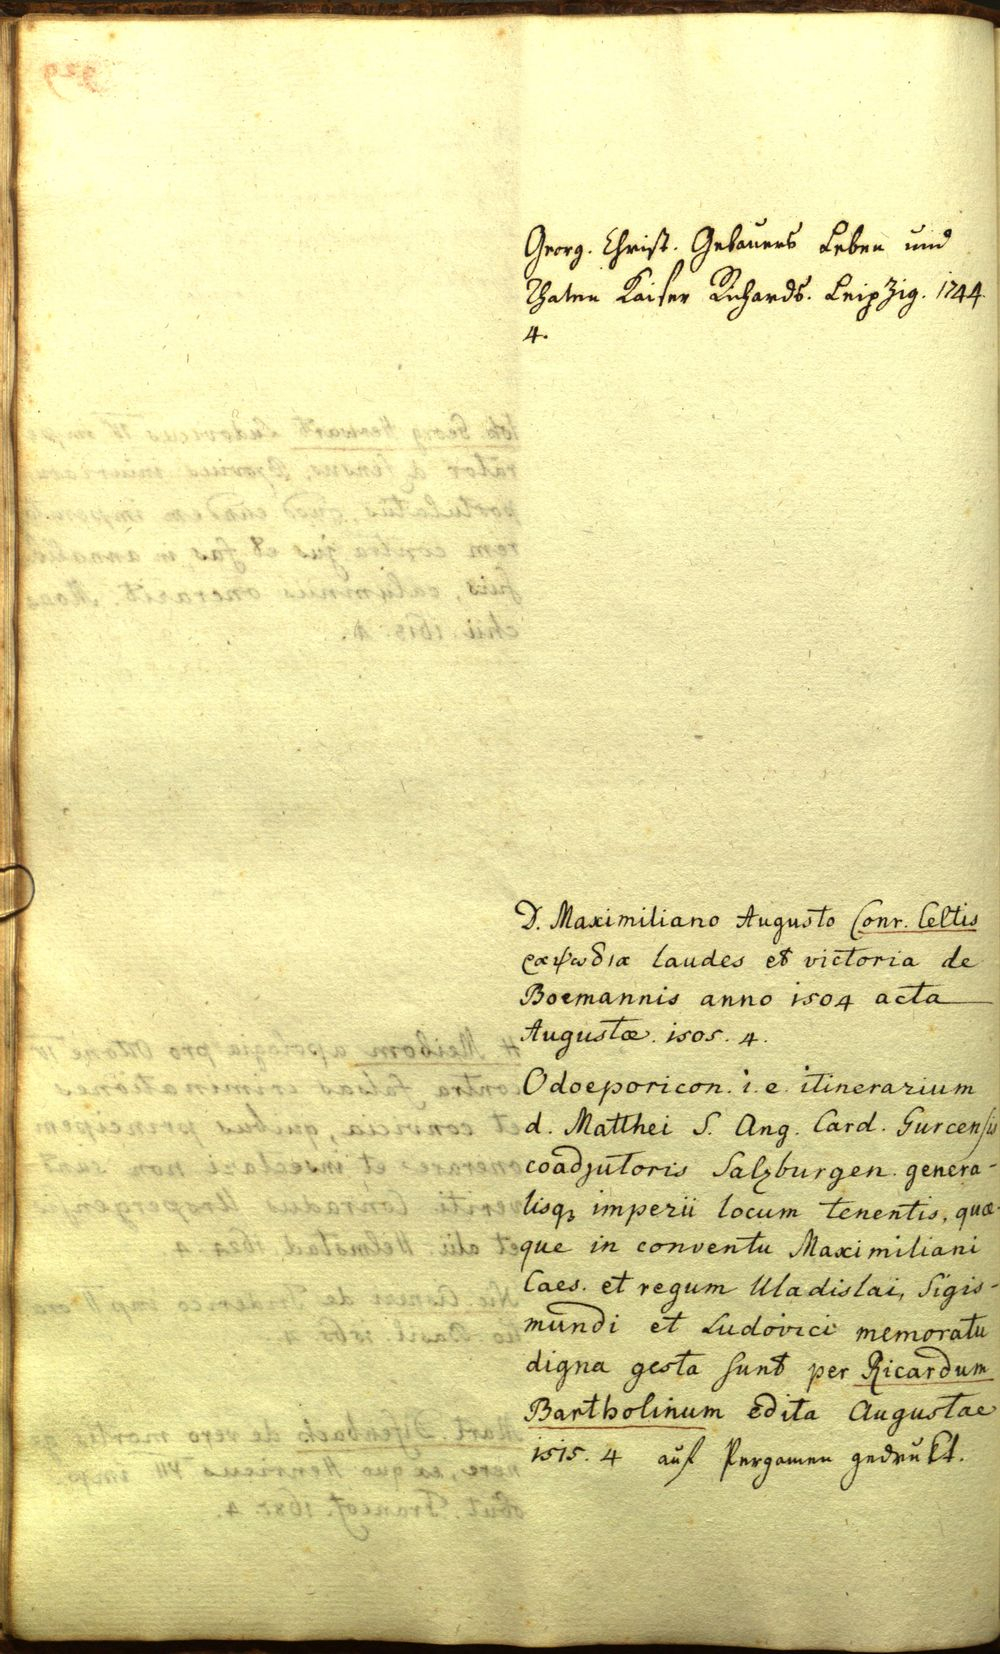 Georg. Christ. Gebauers Leben und
Thaten Kaiser Richards. Leipzig. 1744.
4.
D. Maximiliano Augusto Conr. Celtis
ραψωδια laudes et victoria de
Boemannis anno 1504 acta
Augustæ. 1505. 4.
Odoeporicon. i. e. itinerarium
d. Matthei S. Ang. Card. Gurcensis
coadjutoris Salzburgen. genera-
lisq₃ imperii locum tenentis, quæ-
que in conventu Maximiliani
Caes. et regum Uladislai, Sigis-
mundi et Ludovici memoratu
digna gesta sunt per Ricardum
Bartholinum edita Augustae
1515. 4 auf Pergamen gedrukt.